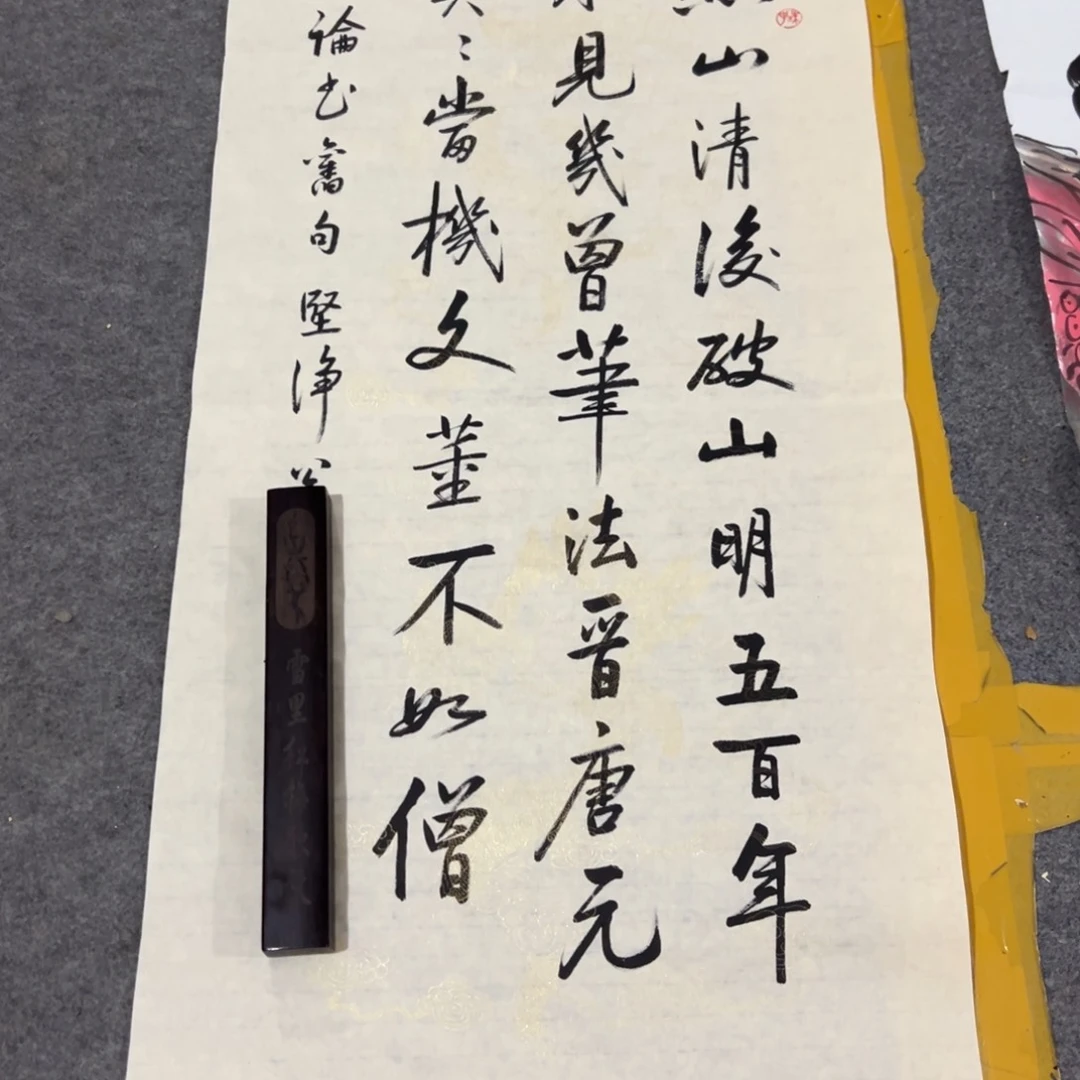 山清後破山明五百年
見幾曾筆法晉唐元
二當機文董不如僧
論書舊句 堅淨